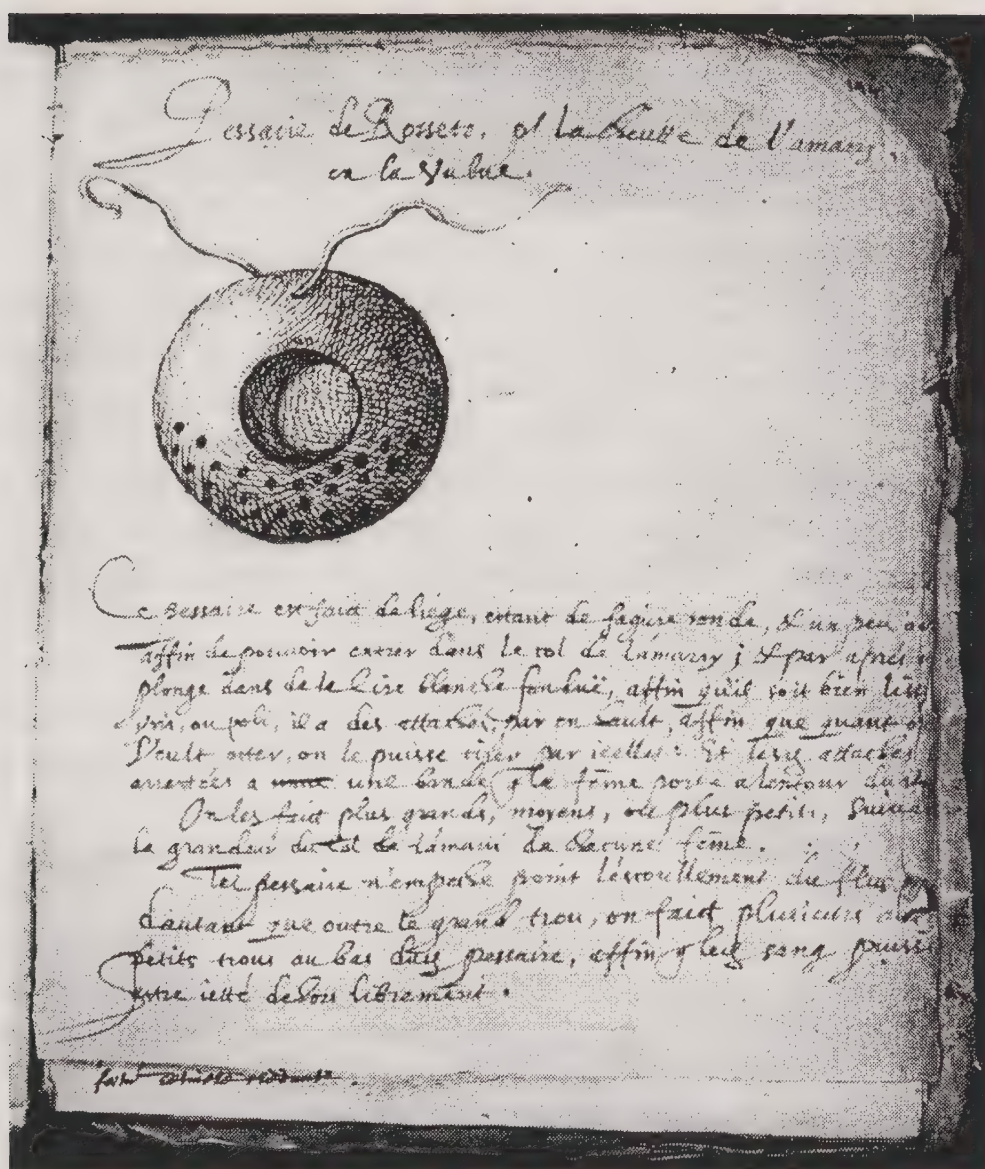 Pessaire de Rosset, pr la cheutte de l'amary,
en la Vulve.
Ce pessaire est faict de liege, estant de figure ronde, & un peu
affin de pouvoir entrer dans le col de lamarry ; & par apres
plonge dans de la Cire blanche fonduë, affin qu'il soit bien
ou poli, il a des attaches par en hault, affin que quant
Veult otter, on le puisse tirer par icelles : Et lesd attaches
arrestées a une bande q la féme porte alentour
On les faict plus grands, moyens, ou plus petits,
la grandeur du Col de l'amari de chacune féme.
Tel pessaire n'empeche point l'escoullement du flus
d'autant que outre le grand trou, on faict plusieurs
petits trous au bas dud pessaire, affin q led sang puisse
estre ietté dehors librement.